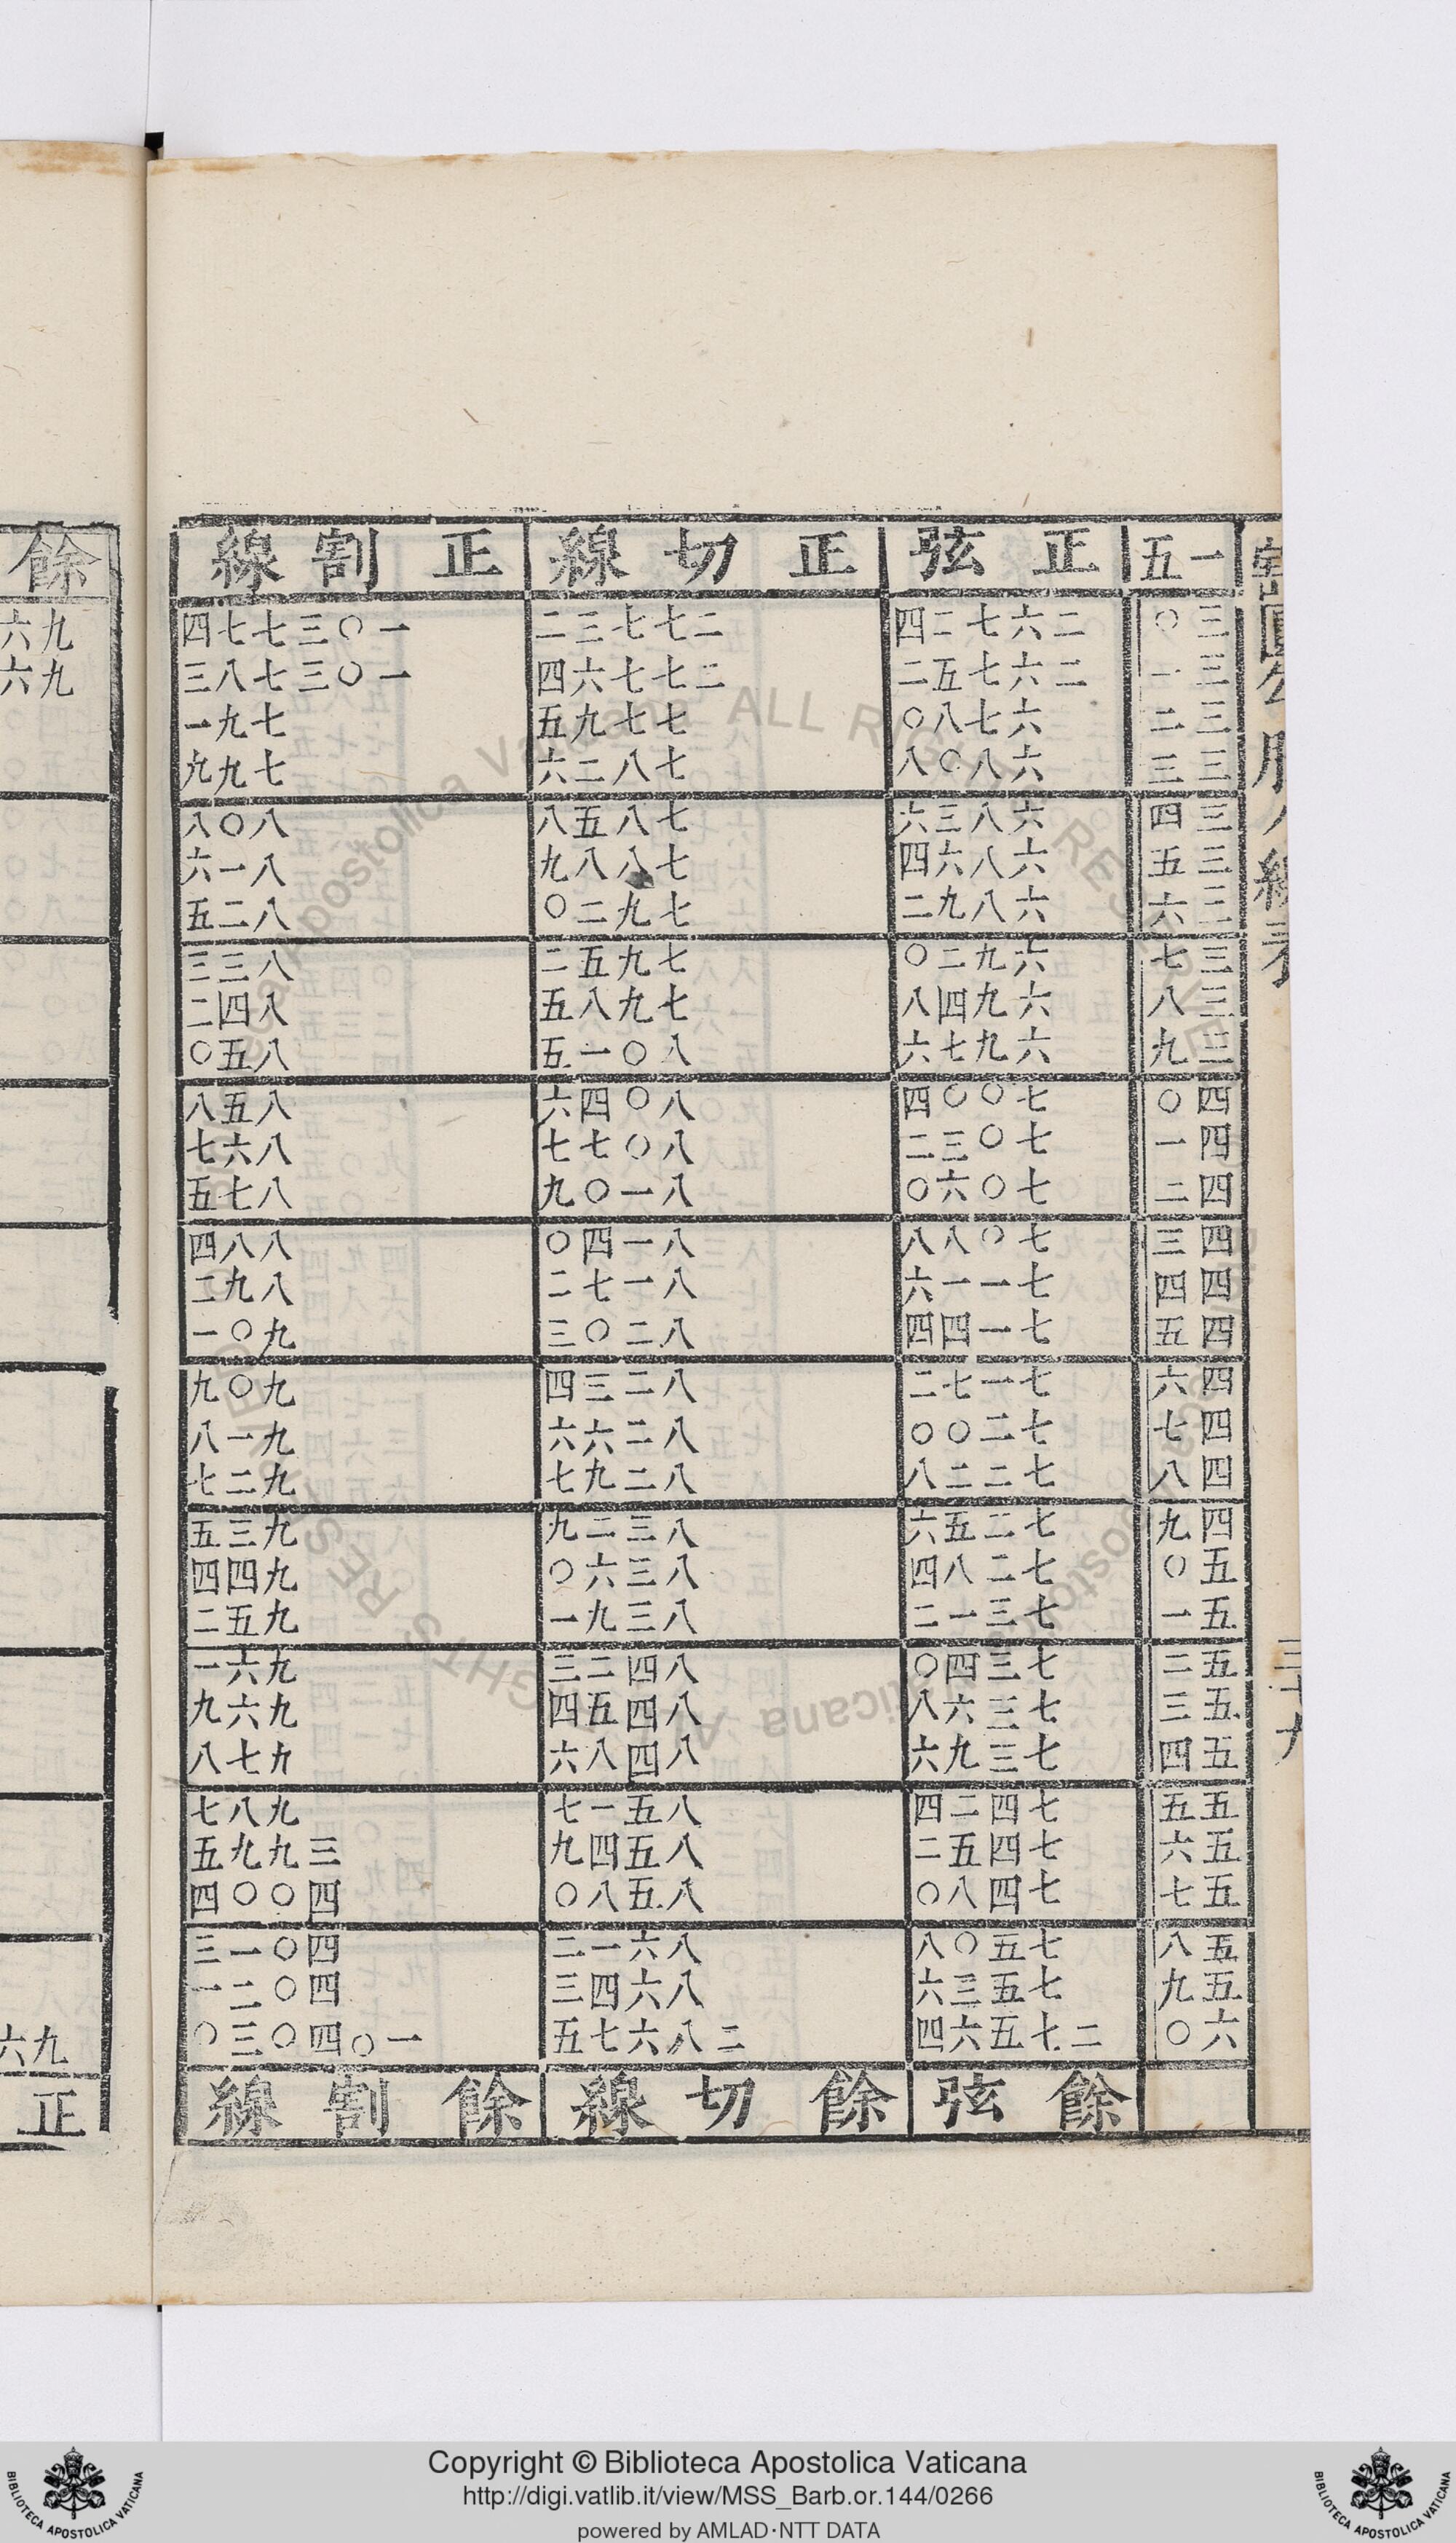 一五 正弦 正切線 正割線
三〇 二六七二四 二七七三二 一〇三七七四
三一 二六七五二 二七七六四 一〇三七八三
三二 六七八〇 七七九五 七九一
三三 六八〇八 七八二六 七九九
三四 六八三六 七八五八 八〇八
三五 六八六四 七八八九 八一六
三六 六八九二 七九二〇 八二五
三七 六九二〇 七九五二 八三三
三八 六九四八 七九八五 八四二
三九 六九七六 八〇一五 八五〇
四〇 七〇〇四 八〇四六 八五八
四一 七〇三二 八〇七七 八六七
四二 七〇六〇 八一〇九 八七五
四三 七〇八八 八一四〇 八八四
四四 七一一六 八一七二 八九二
四五 七一四四 八二〇三 九〇一
四六 七一七二 八二三四 九〇九
四七 七二〇〇 八二六六 九一八
四八 七二二八 八二九七 九二七
四九 七二五六 八三二九 九三五
五〇 七二八四 八三六〇 九四四
五一 七三一二 八三九一 九五二
五二 七三四〇 八四二三 九六一
五三 七三六八 八四五四 九六九
五四 七三九六 八四八六 九七八
五五 七四二四 八五一七 九八七
五六 七四五二 八五四九 三九九五
五七 七四八〇 八五八〇 四〇〇四
五八 七五〇八 八六一二 四〇一三
五九 七五三六 八六四三 四〇二一
六〇 二七五六四 二八六七五 一〇四〇三〇
餘弦 餘切線 餘割線
餘
九六
九六
九六
正
Copyright © Biblioteca Apostolica Vaticana
http://digi.vatlib.it/view/MSS_Barb.or.144/0266
powered by AMLAD·NTT DATA
BIBLIOTECA APOSTOLICA VATICANA
BIBLIOTECA APOSTOLICA VATICANA